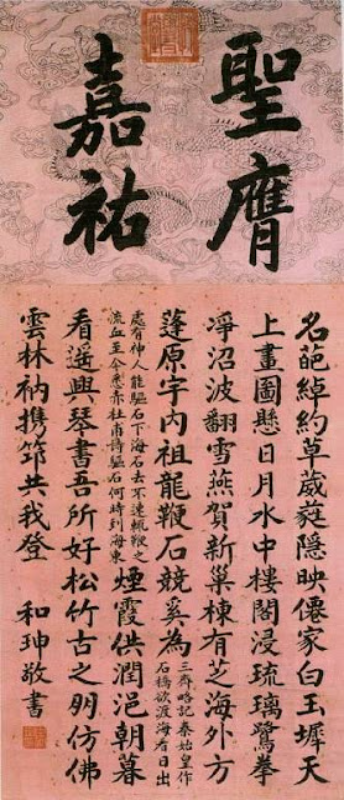 聖膺
嘉祐
名葩綽約草葳蕤隱映僊家白玉墀天
上畫圖懸日月水中樓閣浸琉璃鷺拳
淨沼波翻雪燕賀新巢棟有芝海外方
蓬原宇內祖龍鞭石競奚為三齊略記秦始皇作
石橋欲渡海看日出
處有神人能驅石下海石去不速輒鞭之
流血至今悉赤杜甫詩驅石何時到海東煙霞供潤浥朝暮
看遙興琴書吾所好松竹古之朋仿佛
雲林衲携筇共我登 和珅敬書